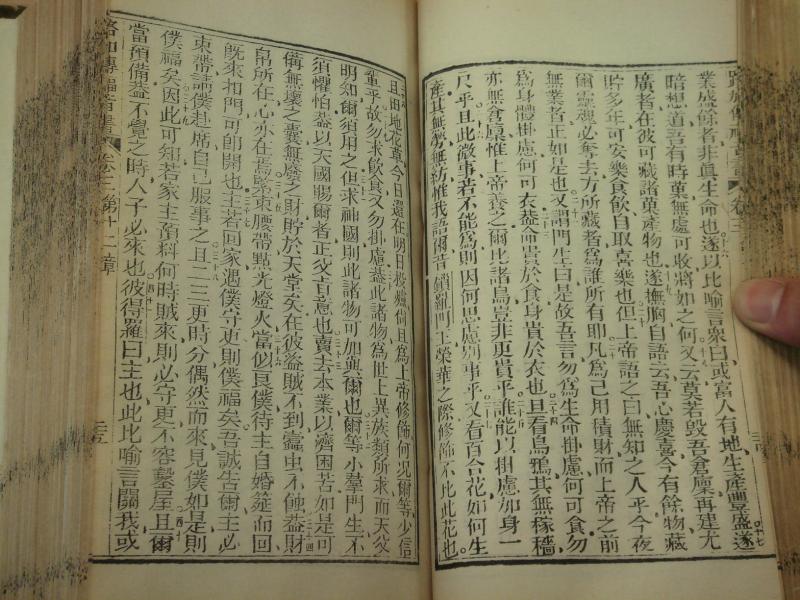 路加傳福音書 卷三
業盛餘者非真生命也遂以比喻言衆曰或富人有地生產豐盛遂
暗想道吾有時菓無處可收將如之何又云莫若毀吾倉廩再建尤
廣者在彼可藏諸菓產物也遂撫胸自語云吾心慶喜今有餘物藏
貯多年可安樂食飲自取喜樂也但上帝語之曰無知之人乎今夜
爾靈魂必奪去方所藏者爲誰所有即凡爲己用積財而上帝之前
無業者正如是也又謂門生曰是故吾言勿爲生命掛慮何可食勿
爲身體掛慮何可衣蓋命貴於食身貴於衣也且看烏鴉其無稼穡
亦無倉廩惟上帝養之爾比諸鳥豈非更貴乎誰能以掛慮加身一
尺乎且此微事若不能爲則因何思慮別事乎又看百合花如何生
產其無勞無紡惟我語爾昔鎖羅門王榮華之際修飾不比此花也
且田地花草今日還在明日投爐尚且爲上帝修飾何况爾等少信
輩乎故勿求飲食又勿掛慮蓋此諸物爲世上異族類所求而天父
明知爾須用之但求神國則此諸物可加與爾也爾等小羣門生不
須懼怕蓋以天國賜爾者正父旨意也賣去本業以濟困苦如是可
備無壞之囊無廢之財貯於天堂矣在彼盜賊不到蠹虫不蝕蓋財
帛所在心亦在焉緊束腰帶點光燈火當似良僕待主自婚筵而回
既來扣門可即開也主若回家遇僕守更則僕福矣吾誠告爾主必
束帶請僕赴席自己服事之且二三更時分偶然而來見僕如是則
僕福矣因此可知若家主預料何時賊來則必守更不容鑿屋且爾
當預備蓋不覺之時人子必來也彼得羅曰主也此比喻言關我或
路加傳福音書 卷三第十二章